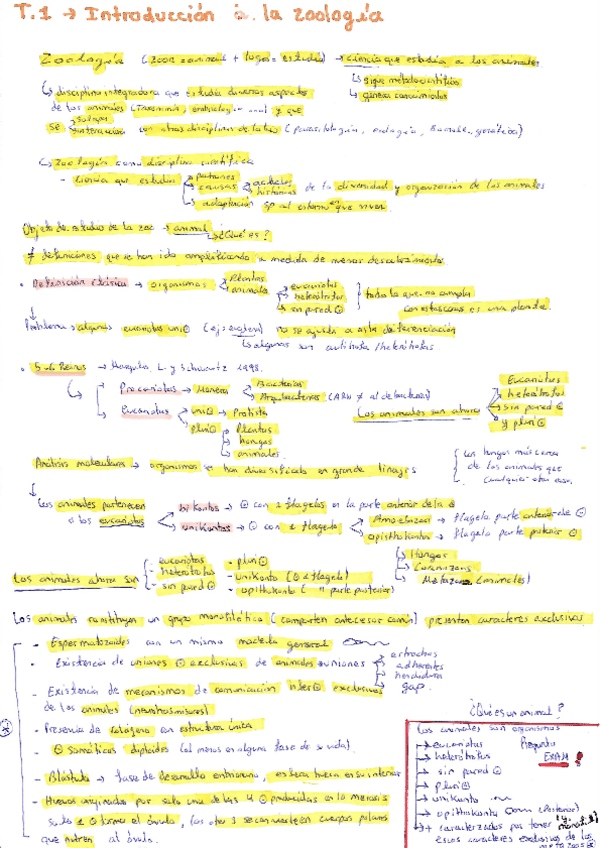 T.1 → Introducción a la zoología
Zoología (zoon = animal + logos = estudio) → ciencia que estudia a los animales
↳ sigue método científico
↳ genera conocimientos
↳ disciplina integradora que estudia diversos aspectos
de los animales (Taxonomía, embriología ...) y que
se solapa
interacciona con otras disciplinas de la bio (parasitología, genética)
↳ Zoología como disciplina científica
- Ciencia que estudia patrones
causas
de la diversidad y organización de los animales
adaptación sp al entorno en que viven
Objeto de estudio de la zoo → animal
↳ ¿Qué es?
≠ definiciones que se han ido amplificando a medida de nuevos descubrimientos
• Definición clásica → organismos Plantas
animales
eucariotas
heterótrofos
sin pared
todo lo que no cumpla
con estas cosas es una planta.
Problema → algunos eucariotas uni (ej: euglena) no se ajusta a esta diferenciación
↳ algunas son autótrofas/heterótrofas.
• 5-6 Reinos → Margulis L. y Schwartz 1998.
Procariotas → Monera Bacterias
Arqueobacterias (ARN ≠ al de bacterias)
Eucariotas uni → Protista
pluri Plantas
hongos
animales
Los animales son ahora
Eucariotas
heterótrofos
sin pared
y pluri
Los hongos más cerca
de los animales que
cualquier otra cosa.
Análisis moleculares → organismos se han diversificado en grande linajes
Los animales pertenecen
a los eucariotas
bikontos → con 2 flagelos en la parte anterior de la
unikontos → con 1 flagelo
Amoebozoos → flagelo parte anterior de
opisthokontos → flagelo parte posterior
↳ Hongos
↳ Coanozoos
↳ Metazoos (animales)
Los animales ahora son
- eucariotas
- heterótrofos
- sin pared
- pluri
- unikonto (1 flagelo)
- opisthokonto (parte posterior)
Los animales constituyen un grupo monofilético (comparten antecesor común) presentan caracteres exclusivos
- Espermatozoides con un mismo modelo general
- Existencia de uniones exclusivas de animales → uniones estrechas
adherentes
hendidura
gap.
- Existencia de mecanismos de comunicación inter exclusivos
de los animales (neurotransmisores)
- Presencia de colágeno con estructura única
- somáticos diploides (al menos en alguna fase de su vida).
- Blástula → fase de desarrollo embrionario, esfera hueca en su interior
- Huevos originados por solo una de las 4 producidas en la meiosis
solo 1 forma el óvulo, las otras 3 se convierten cuerpos polares
que nutren al óvulo.
¿Qué es un animal?
Los animales son organismos
→ eucariotas
→ heterótrofos
→ sin pared
→ pluri
→ unikonto
→ opisthokonto (Posterior)
Pregunta
EXAMEN!
↳ + caracterizados por tener
esos caracteres exclusivos de los
metazoos